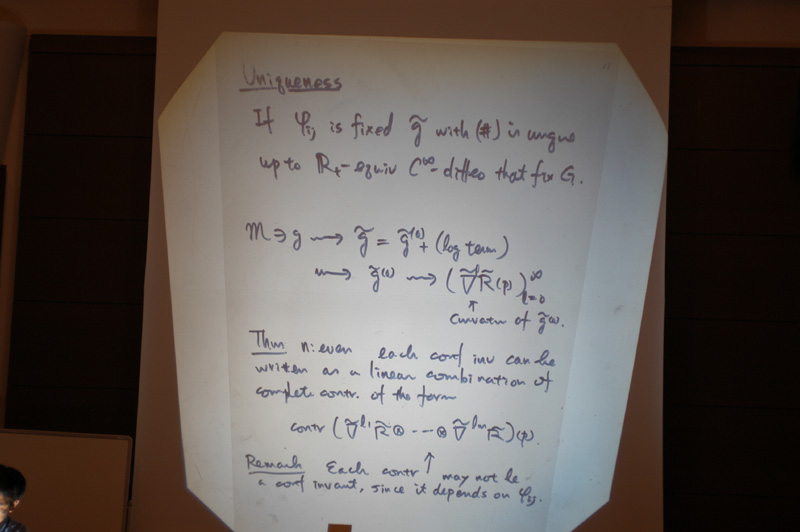 Uniqueness
If φij is fixed g̃ with (#) is unique
up to R+-equiv C∞-diffeo that fix G.
M ∋ g ⟿ g̃ = g̃⁽ᵃ⁾ + (log term)
⟿ g̃⁽ᵃ⁾ ⟿ (∇̃ˡR̃(p))∞l=0
↑
Curvature of g̃⁽ᵃ⁾.
Thm n: even each conf inv can be
written as a linear combination of
complete contr. of the form
contr (∇̃ˡ¹ R̃ ⊗ ---⊗ ∇̃ˡᵐ R̃)(p).
Remark Each contr ↑ may not be
a conf invant, since it depends on φij.